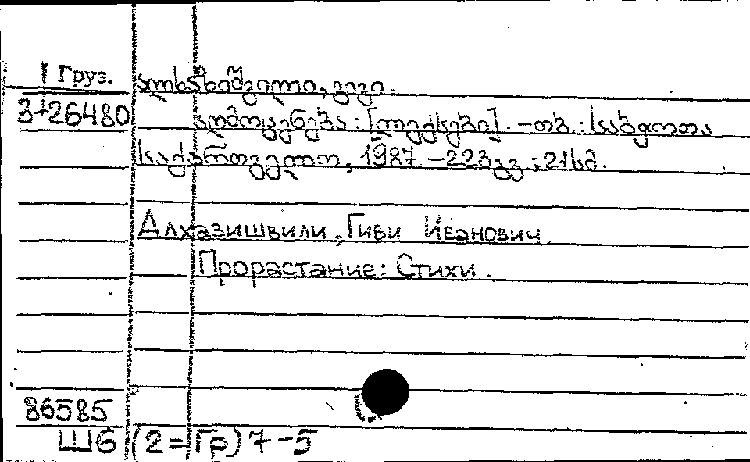 Груз. ალხაზიშვილი, გივი.
3-26480 აღმოცენება : [ლექსები]. – თბ. : საბჭოთა
საქართველო, 1987. – 223გვ ; 21სმ.
Алхазишвили, Гиви Иванович.
Прорастание: Стихи.
86585
Ш6 (2=Гр) 7-5